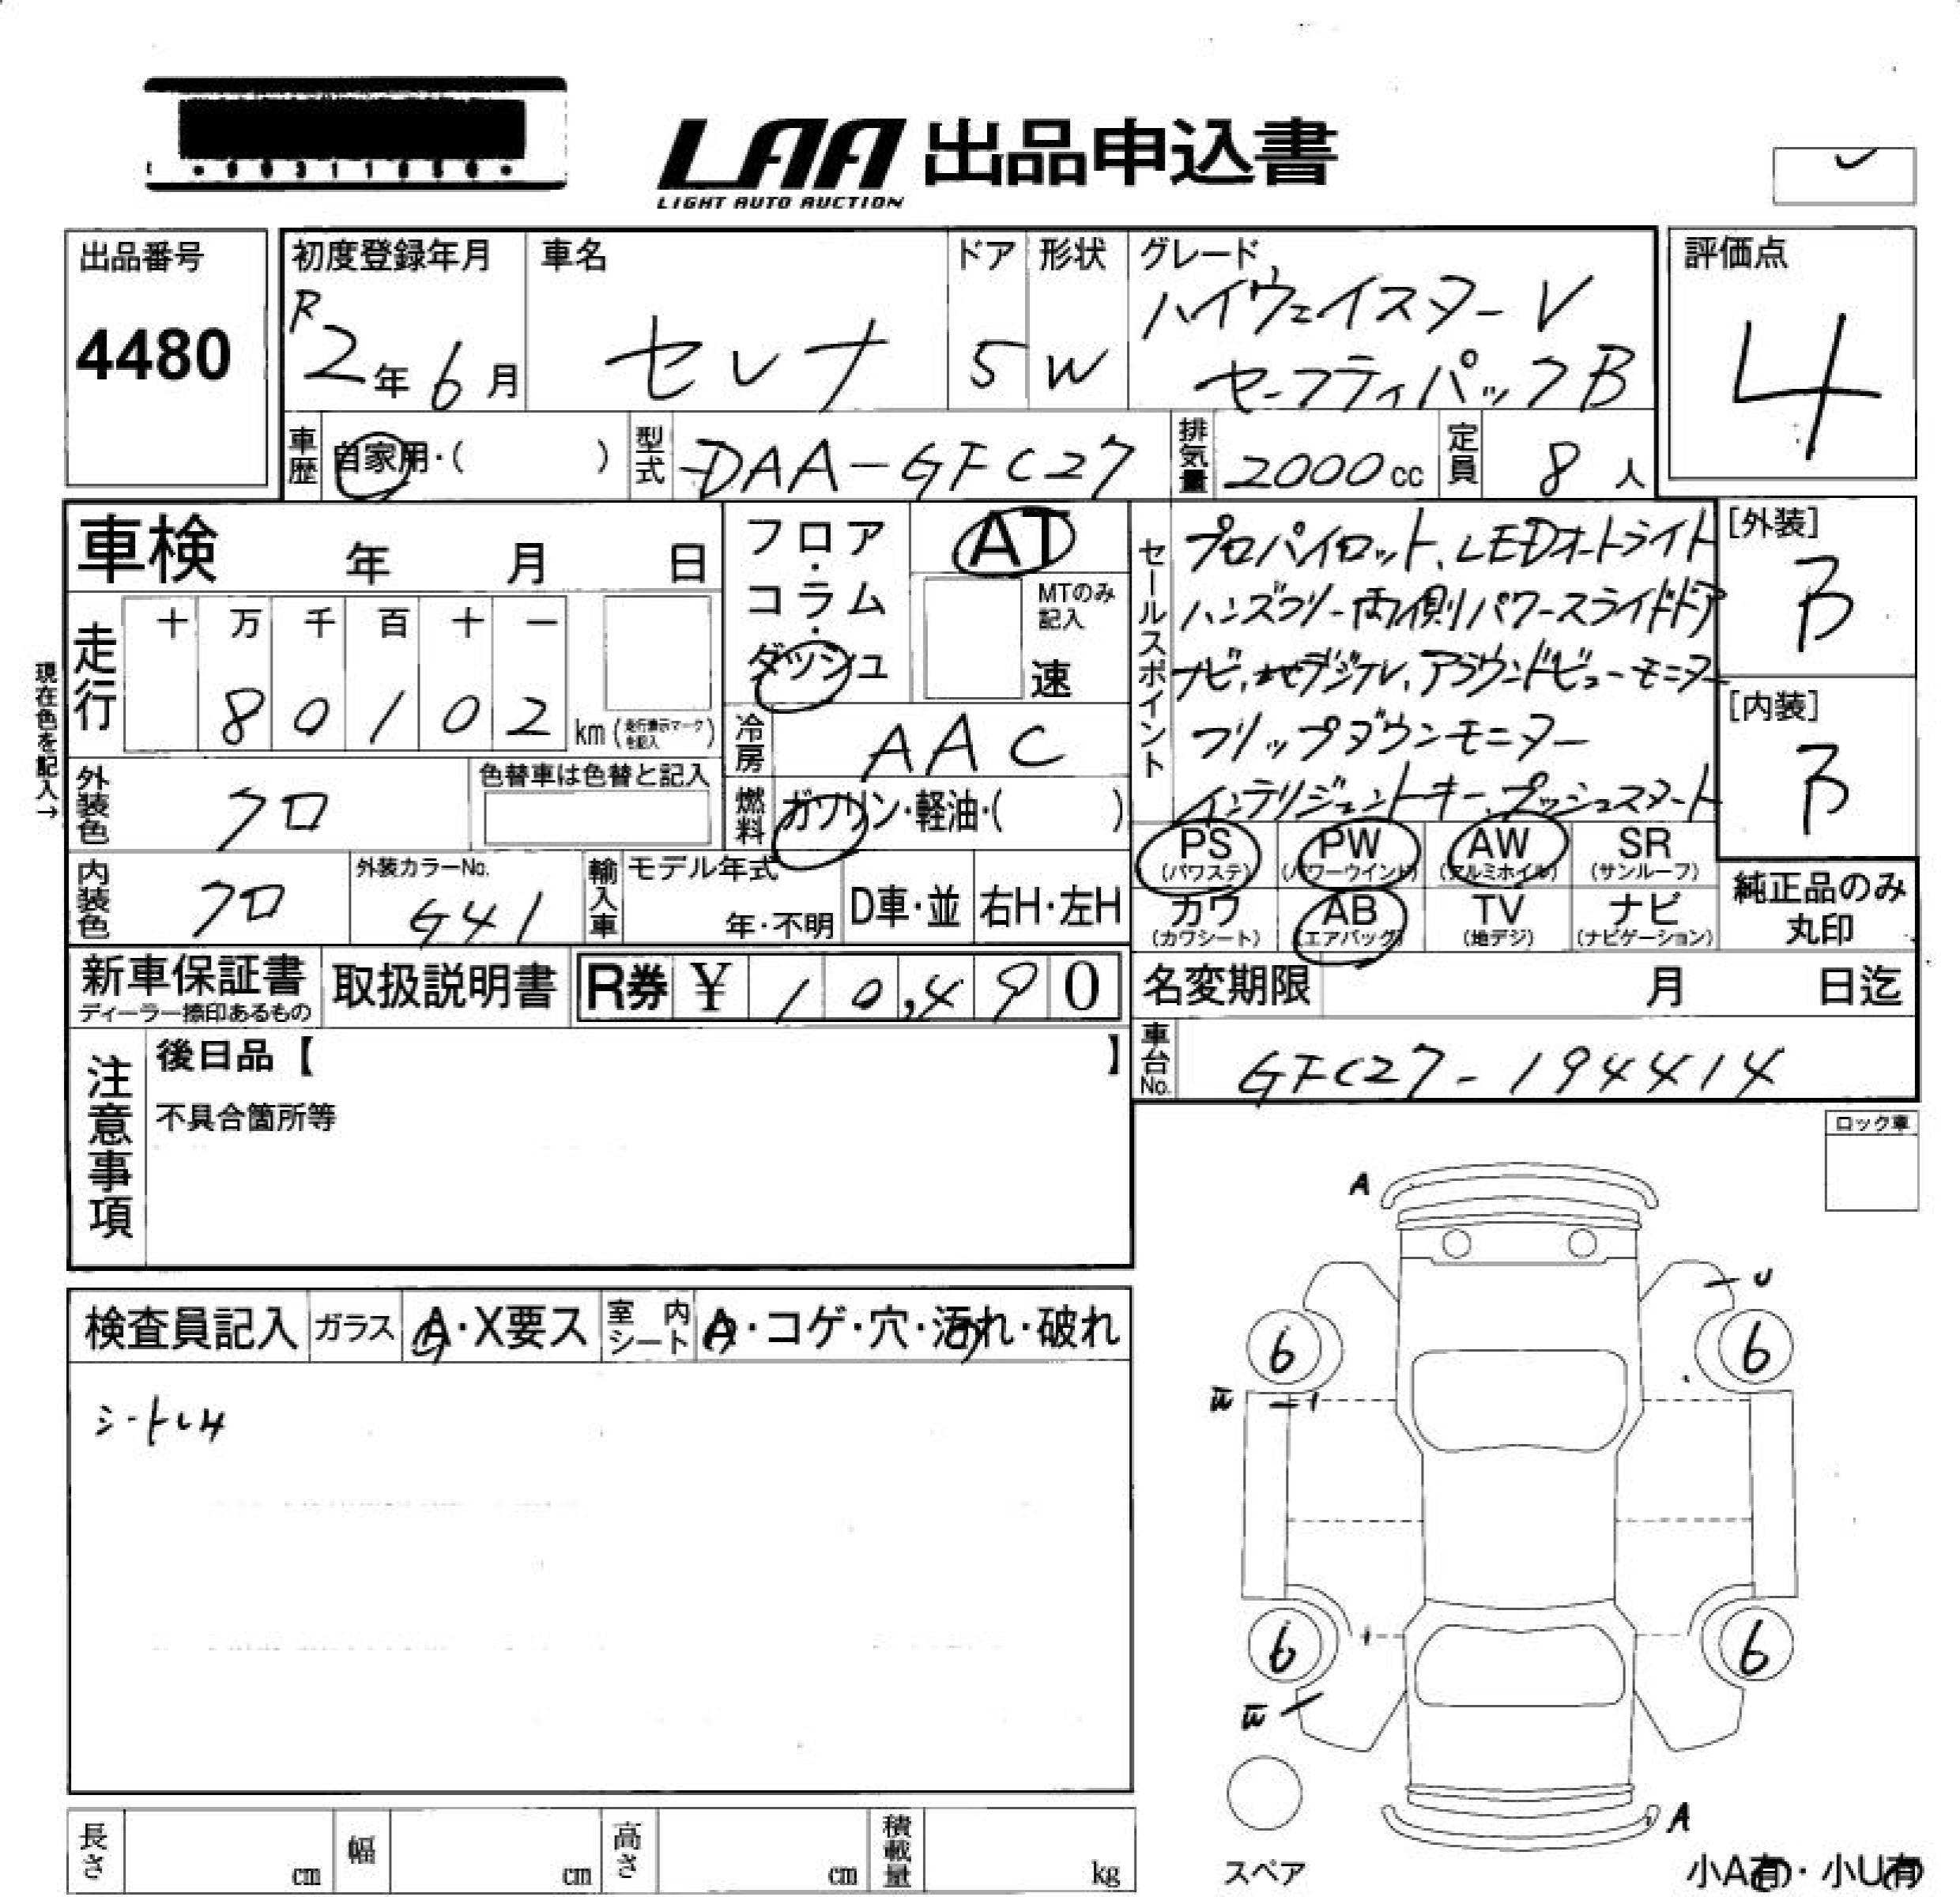 LAA 出品申込書
LIGHT AUTO AUCTION
出品番号
4480
初度登録年月
R2年6月
車名
セレナ
ドア
5
形状
W
グレード
ハイウェイスターV
セーフティパックB
評価点
4
車歴
自家用・( )
型式
DAA-GFC27
排気量
2000cc
定員
8人
車検 年 月 日
フロア・
コラム・
ダッシュ
AT
MTのみ
記入
速
セールスポイント
プロパイロット、LEDオートライト
ハンズフリー両側パワースライドドア
ナビ、地デジTV、アラウンドビューモニター
フリップダウンモニター
インテリジェントキー、プッシュスタート
[外装]
B
[内装]
B
現在色を記入→
走行
十 万 千 百 十 一
8 0 1 0 2 km (走行表示マークを記入)
冷房
AAC
外装色
クロ
色替車は色替と記入
燃料
ガソリン・軽油・( )
PS
(パワステ)
PW
(パワーウインド)
AW
(アルミホイル)
SR
(サンルーフ)
カワ
(カワシート)
AB
(エアバッグ)
TV
(地デジ)
ナビ
(ナビゲーション)
純正品のみ
丸印
内装色
クロ
外装カラーNo.
G41
輸入車
モデル年式
年・不明
D車・並
右H・左H
新車保証書
ディーラー捺印あるもの
取扱説明書
R券 ¥ 10,490
名変期限 月 日迄
車台No.
GFC27-194414
注意事項
後日品【 】
不具合箇所等
ロック車
検査員記入
ガラス
A・X要ス
室内
シート
A・コゲ・穴・汚れ・破れ
シートしみ
A
U
6
6
6
6
A
スペア
小A有・小U有
長さ cm
幅 cm
高さ cm
積載量 kg